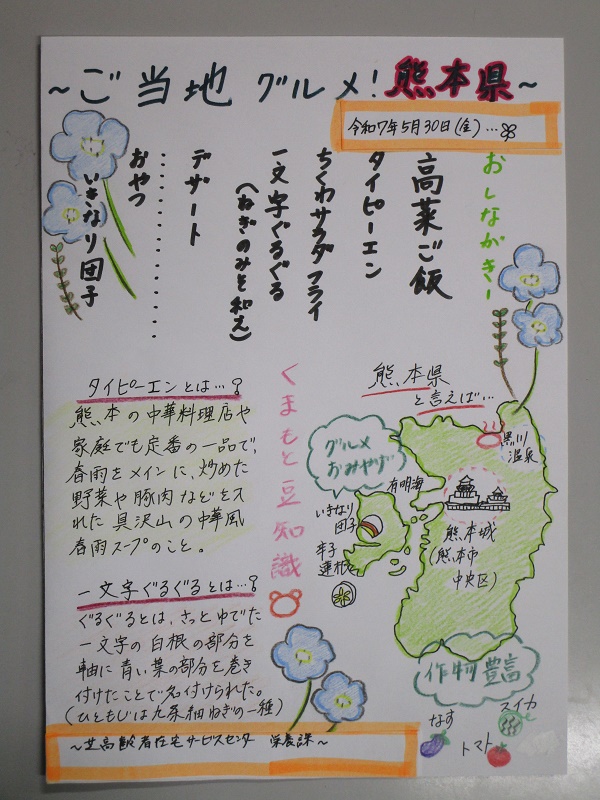 ～ご当地グルメ!熊本県～
令和7年5月30日(金)…
おしながきー
高菜ご飯
タイピーエン
ちくわサラダフライ
一文字ぐるぐる
(ねぎのみそ和え)
デザート
おやつ…………………
いきなり団子
タイピーエンとは…?
熊本の中華料理店や
家庭でも定番の一品で、
春雨をメインに、炒めた
野菜や豚肉などを入
れた具沢山の中華風
春雨スープのこと。
一文字ぐるぐるとは…?
ぐるぐるとは、さっとゆでた
一文字の白根の部分を
軸に青い葉の部分を巻き
付けたことで名付けられた。
(ひともじは九条細ねぎの一種)
くまもと豆知識
熊本県
と言えば…
グルメ
おみやげ
有明海
いきなり
団子
辛子
蓮根
黒川
温泉
熊本城
(熊本市
中央区)
作物豊富
なす
スイカ
トマト
～芝高齢者在宅サービスセンター 栄養課～